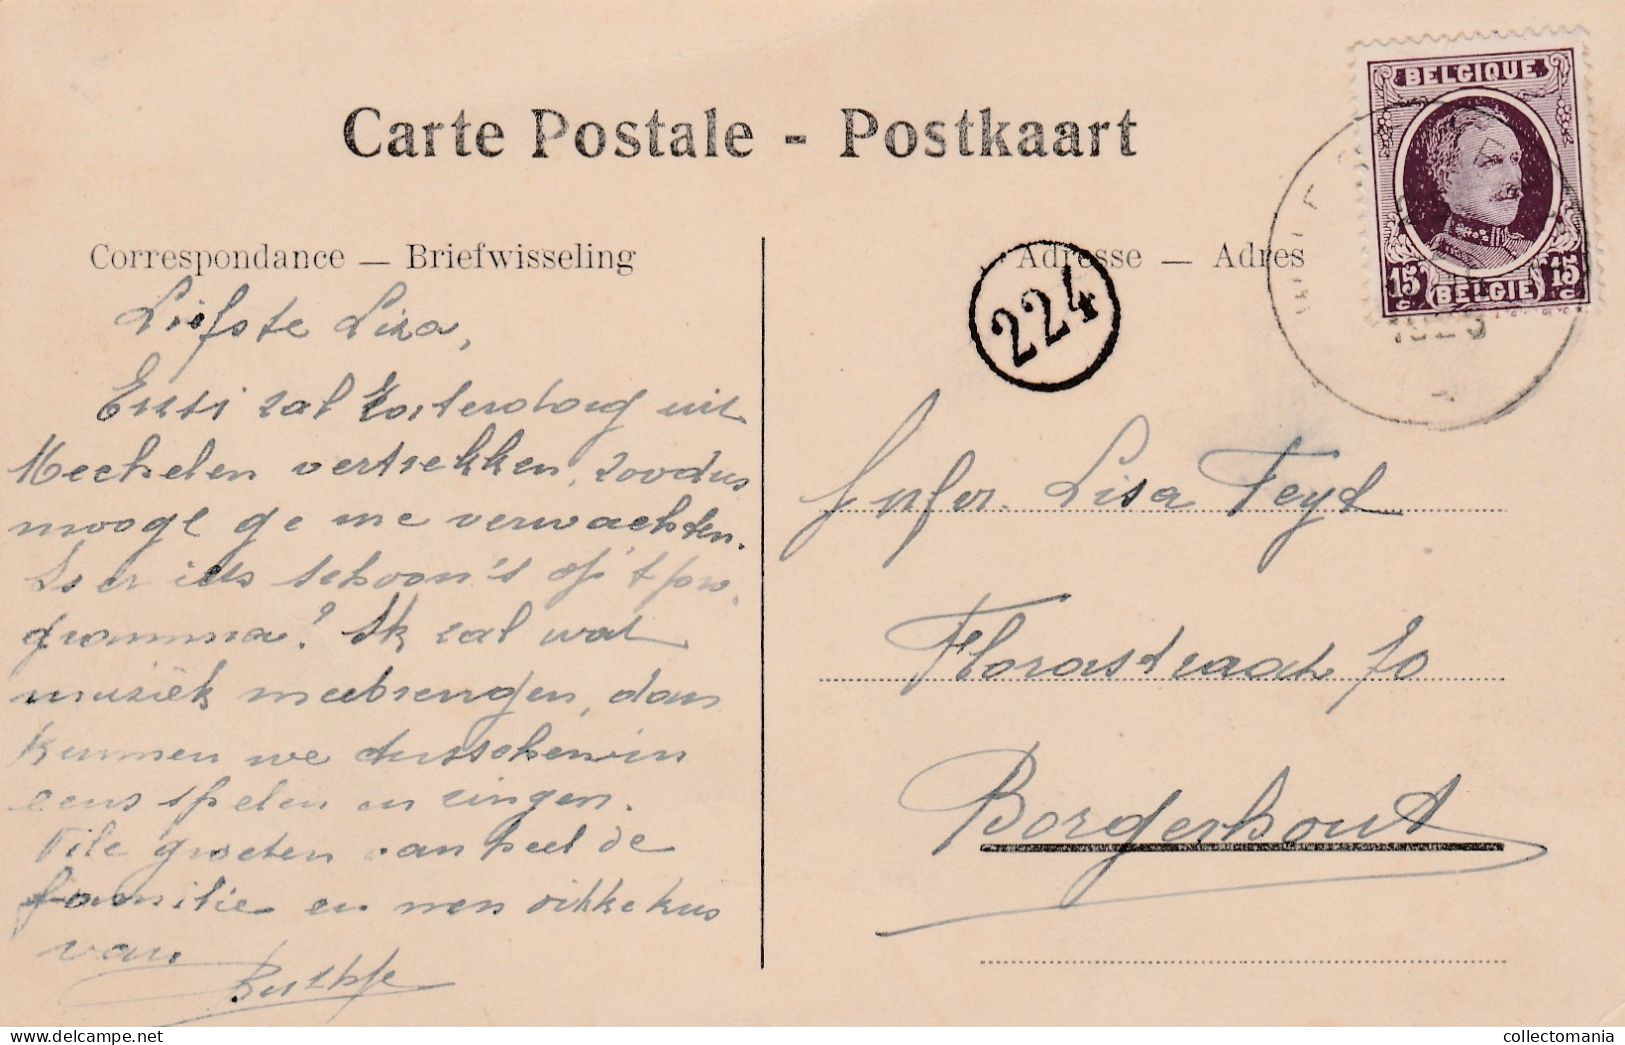 Carte Postale - Postkaart
BELGIQUE
15 c BELGIË 15 c
1923
Correspondance — Briefwisseling
Adresse — Adres
224
Liefste Liza,
Ersti zal Zosterdaag uit
Mechelen vertrekken, zoodus
moogt ge me verwachten.
Is er iets schoon's op 't pro-
gramma? Ik zal wat
muziek meebrengen, dan
kunnen we tusschenin
eens spelen en zingen.
Vile groeten aan heel de
familie en nen dikke kus
van
Berthje
Jufer. Lisa Feyt
Florastraat 70
Borgerhout
Welcome at Delcampe.net
collectomania